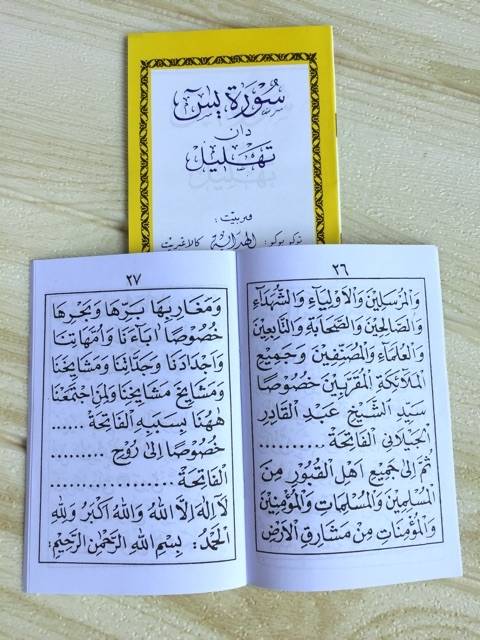 سُوْرَةُ يٰسٓ
دان
تَهْلِيْل
فنربيت :
توكو بوكو : الهداية
٢٦
وَالْمُرْسَلِيْنَ وَالْاَوْلِيَاءِ وَالشُّهَدَاءِ
وَالصَّالِحِيْنَ وَالصَّحَابَةِ وَالتَّابِعِيْنَ
وَالْعُلَمَاءِ وَالْمُصَنِّفِيْنَ وَجَمِيْعِ
الْمَلَائِكَةِ الْمُقَرَّبِيْنَ خُصُوْصًا
سَيِّدِ الشَّيْخِ عَبْدِ الْقَادِرِ
الْجَيْلَانِى الْفَاتِحَةْ ..........
ثُمَّ اِلٰى جَمِيْعِ اَهْلِ الْقُبُوْرِ مِنَ
الْمُسْلِمِيْنَ وَالْمُسْلِمَاتِ وَالْمُؤْمِنِيْنَ
وَالْمُؤْمِنَاتِ مِنْ مَشَارِقِ الْاَرْضِ
٢٧
وَمَغَارِبِهَا بَرِّهَا وَبَحْرِهَا
خُصُوْصًا اٰبَاءَنَا وَاُمَّهَاتِنَا
وَاَجْدَادَنَا وَجَدَّاتِنَا وَمَشَايِخَنَا
وَمَشَايِخَ مَشَايِخِنَا وَلِمَنِ اجْتَمَعْنَا
هٰهُنَا بِسَبَبِهِ الْفَاتِحَةْ ......
خُصُوْصًا اِلٰى رُوْحِ .........
الْفَاتِحَةْ ..................
لَآ اِلٰهَ اِلَّا اللهُ وَاللهُ اَكْبَرُ وَلِلّٰهِ
الْحَمْدُ: بِسْمِ اللهِ الرَّحْمٰنِ الرَّحِيْمِ: